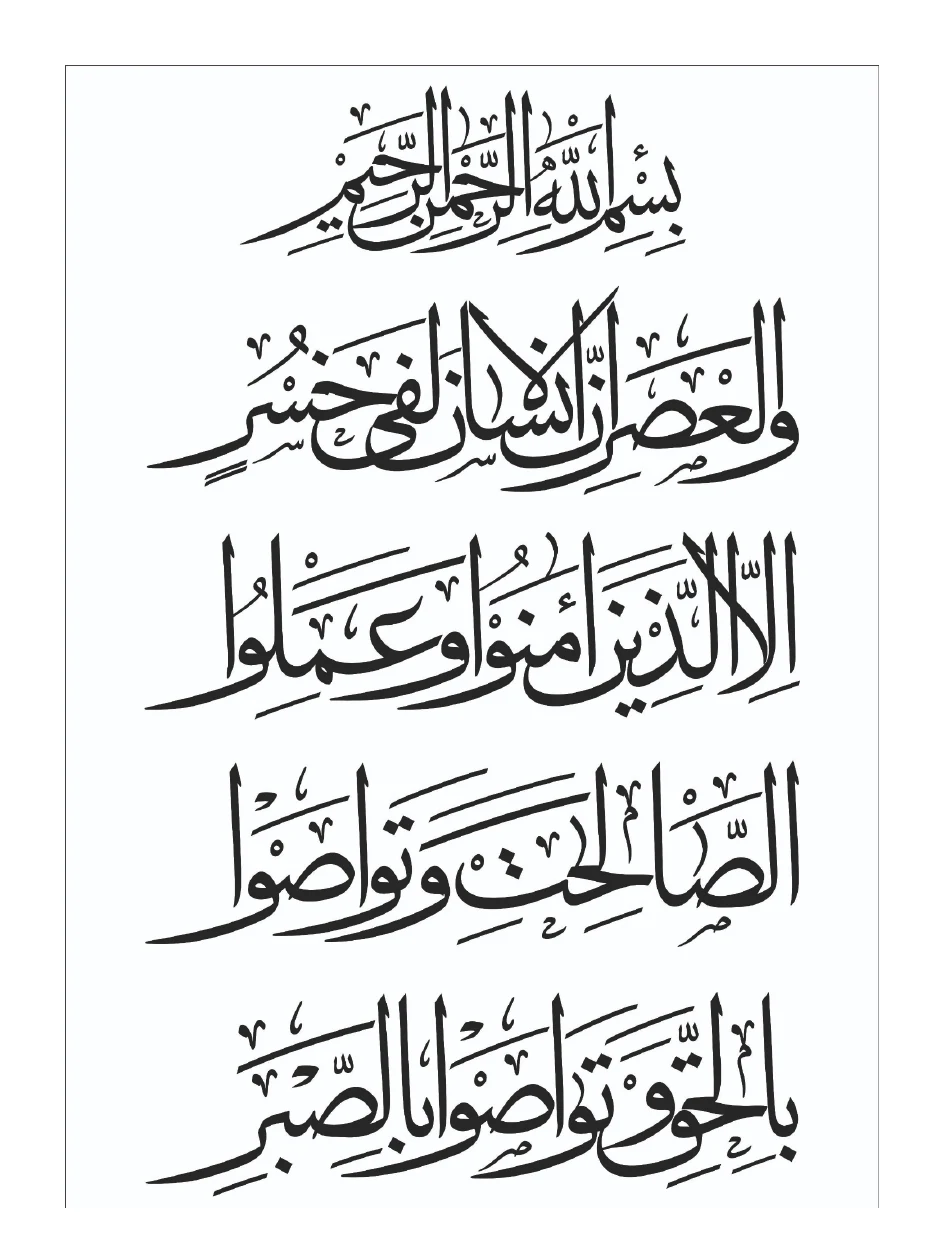 بِسْمِ اللّٰهِ الرَّحْمٰنِ الرَّحِيْمِ
والْعَصْرِ اِنَّ الْاِنْسَانَ لَفِى خُسْرٍ
اِلَّا الَّذِيْنَ اٰمَنُوْا وَعَمِلُوْا
الصَّالِحٰتِ وَتَوَاصَوْا
بِالْحَقِّ وَتَوَاصَوْا بِالصَّبْرِ